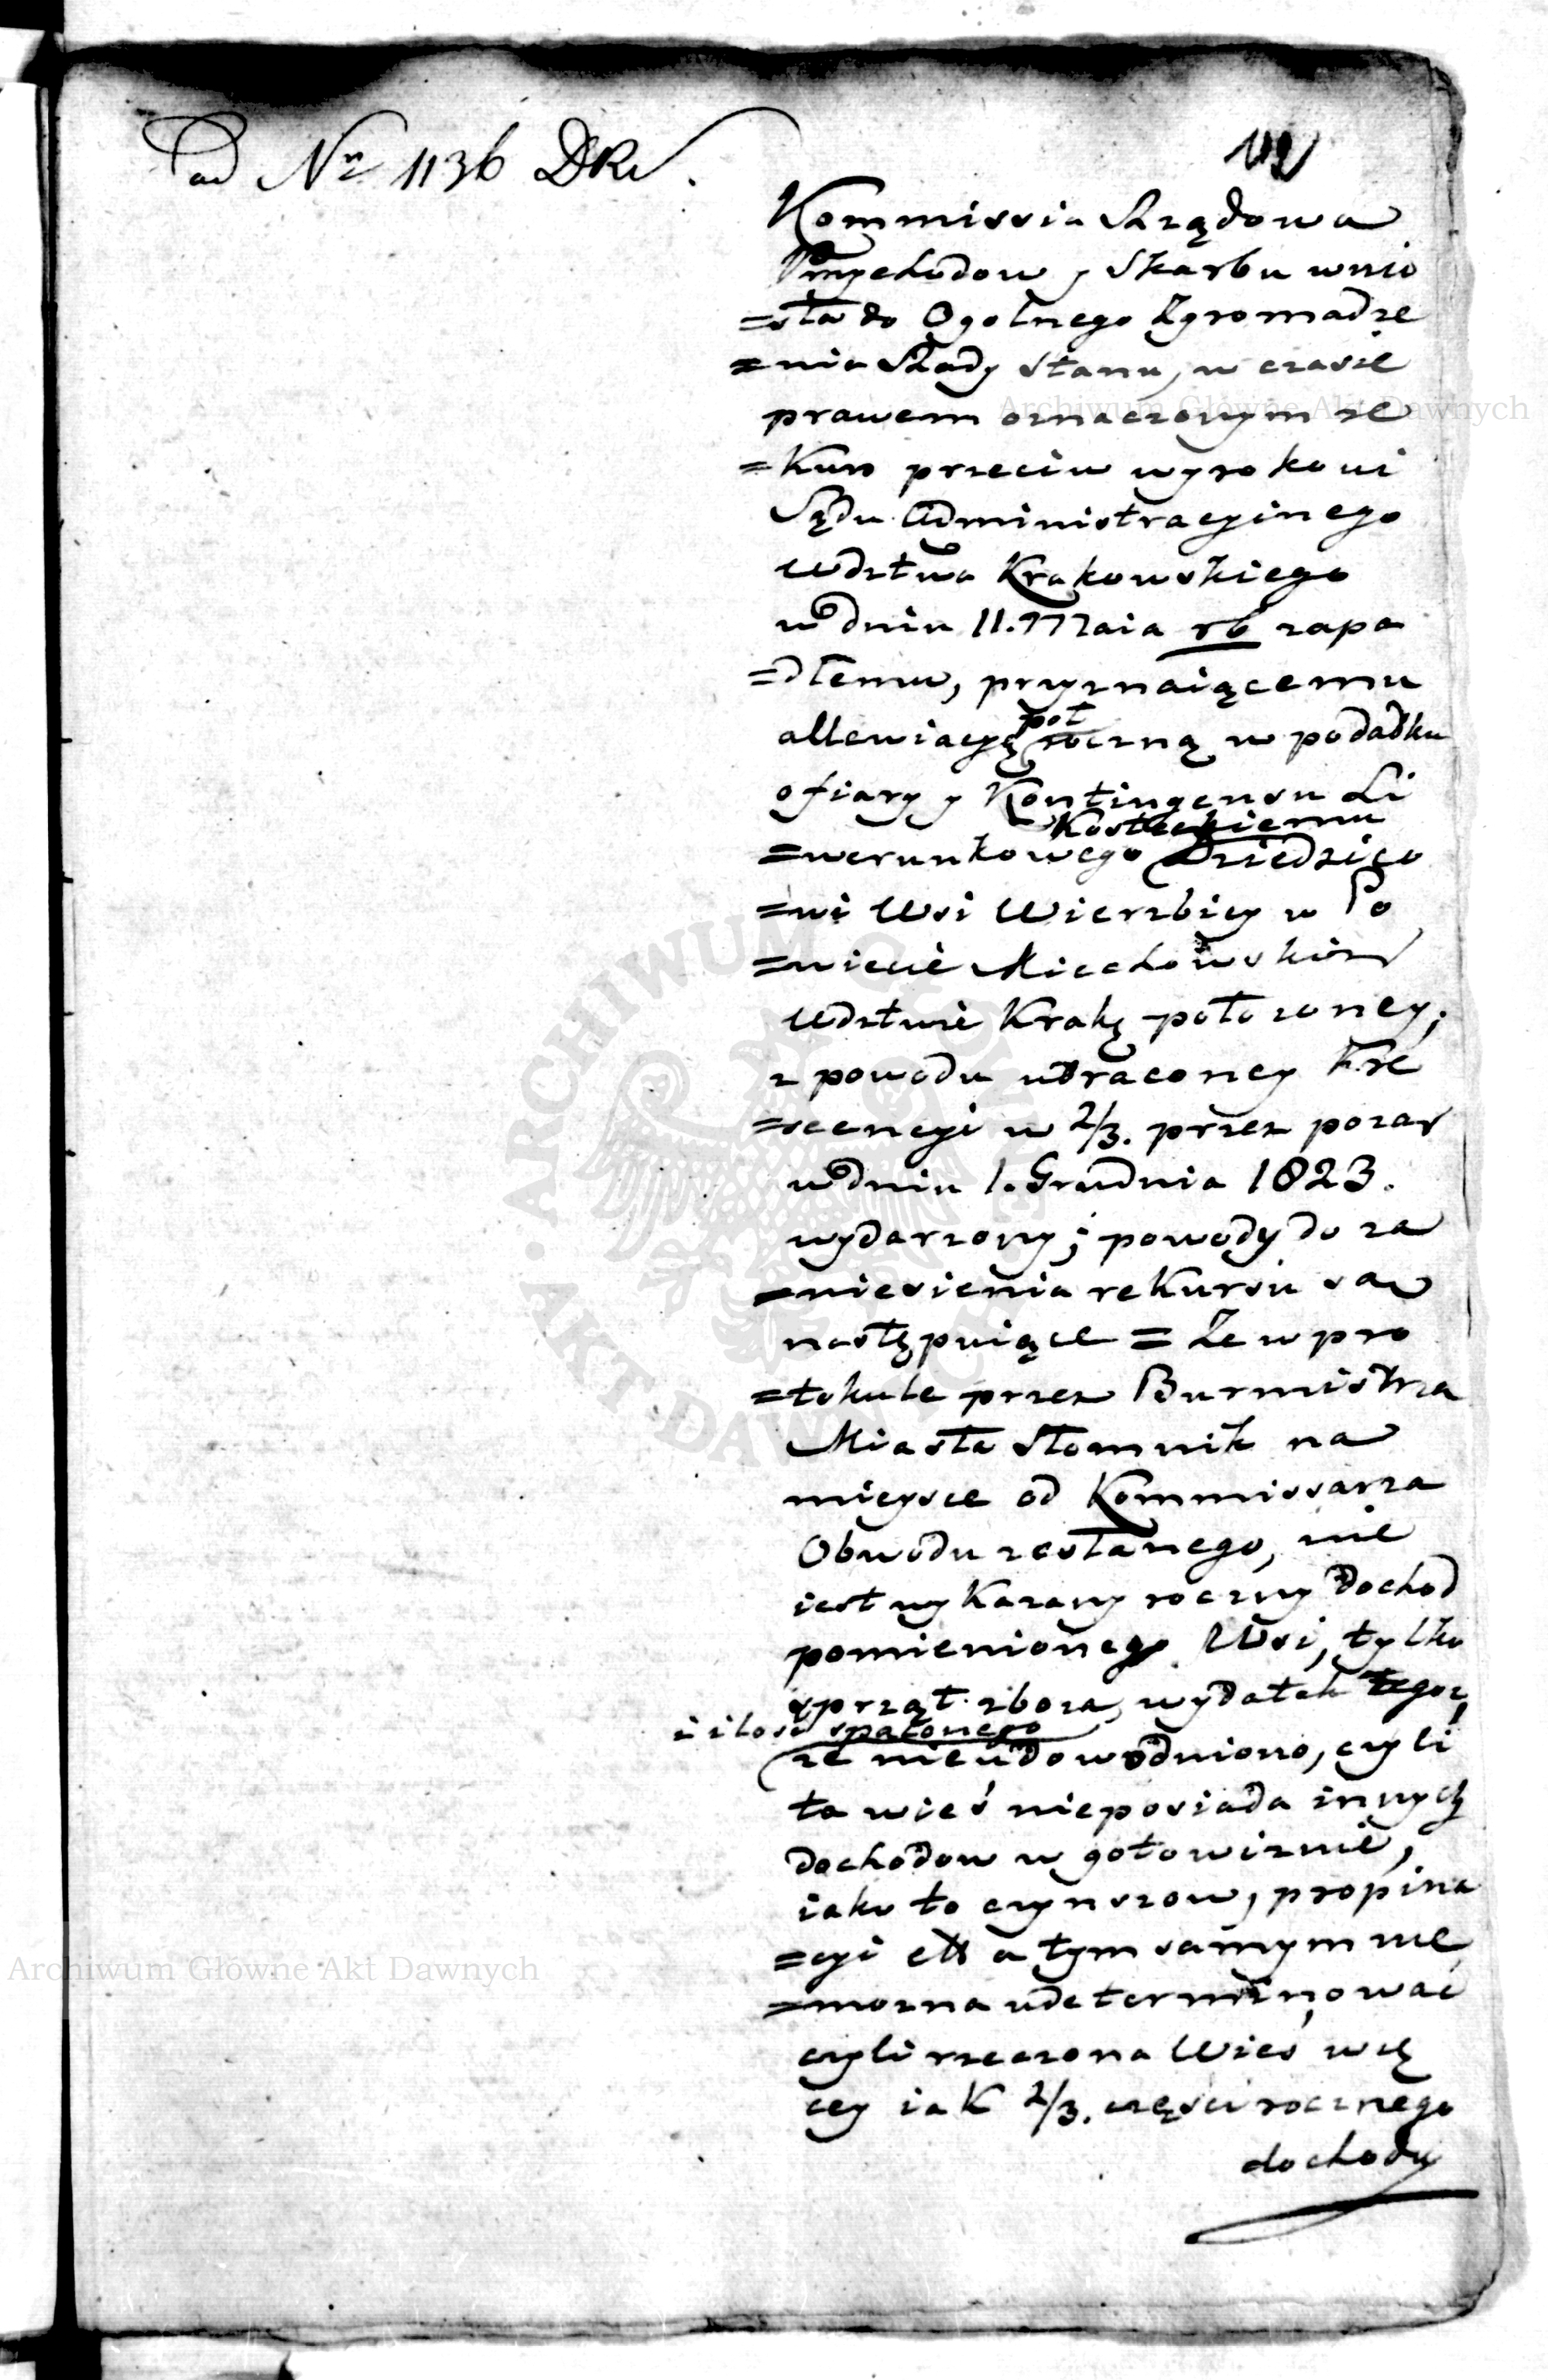 ad Nr 1136 DRS.
112
Kommissia Rządowa
Przychodow y Skarbu wnio
=sła do Ogolnego Zgromadze
=nia Rady Stanu, w czasie
prawem oznaczonym re
=kurs przeciw wyrokowi
Sądu Administracyinego
Wdztwa Krakowskiego
w dniu 11. Maia rb zapa
=dłemu, przyznaiącemu
allewiacyę poł roczną w podatku
ofiary y Kontingensu Li
=werunkowego Kosteckiemu Dziedzico
=wi Wsi Wierzbicy w Po
=wiecie Miechowskim
Wdztwie Krakę położoney,
z powodu utraconey kre
=scencyi w 2/3. przez pożar
w dniu 1. Grudnia 1823.
wydarzony; powody do za
=niesienia rekursu są
następuiące = Że w pro
=tokule przez Burmistrza
Miasta Słomnik na
mieysce od Kommissarza
Obwodu zesłanego, nie
iest wykazany roczny dochod
pomienioney Wsi, tylko
sprząt zboza, wydatek tegoz,
i ilość spalonego
ze nieudowodniono, czyli
ta wieś nieposiada innych
dochodow w gotowiznie,
iako to czynszow, propina
=cyi ett a tym samym nie
=mozna udeterminować
czyli rzeczona Wieś wię
cey iak 2/3. części rocznego
dochodu
Archiwum Główne Akt Dawnych
Archiwum Główne Akt Dawnych
ARCHIWUM GŁÓWNE AKT DAWNYCH